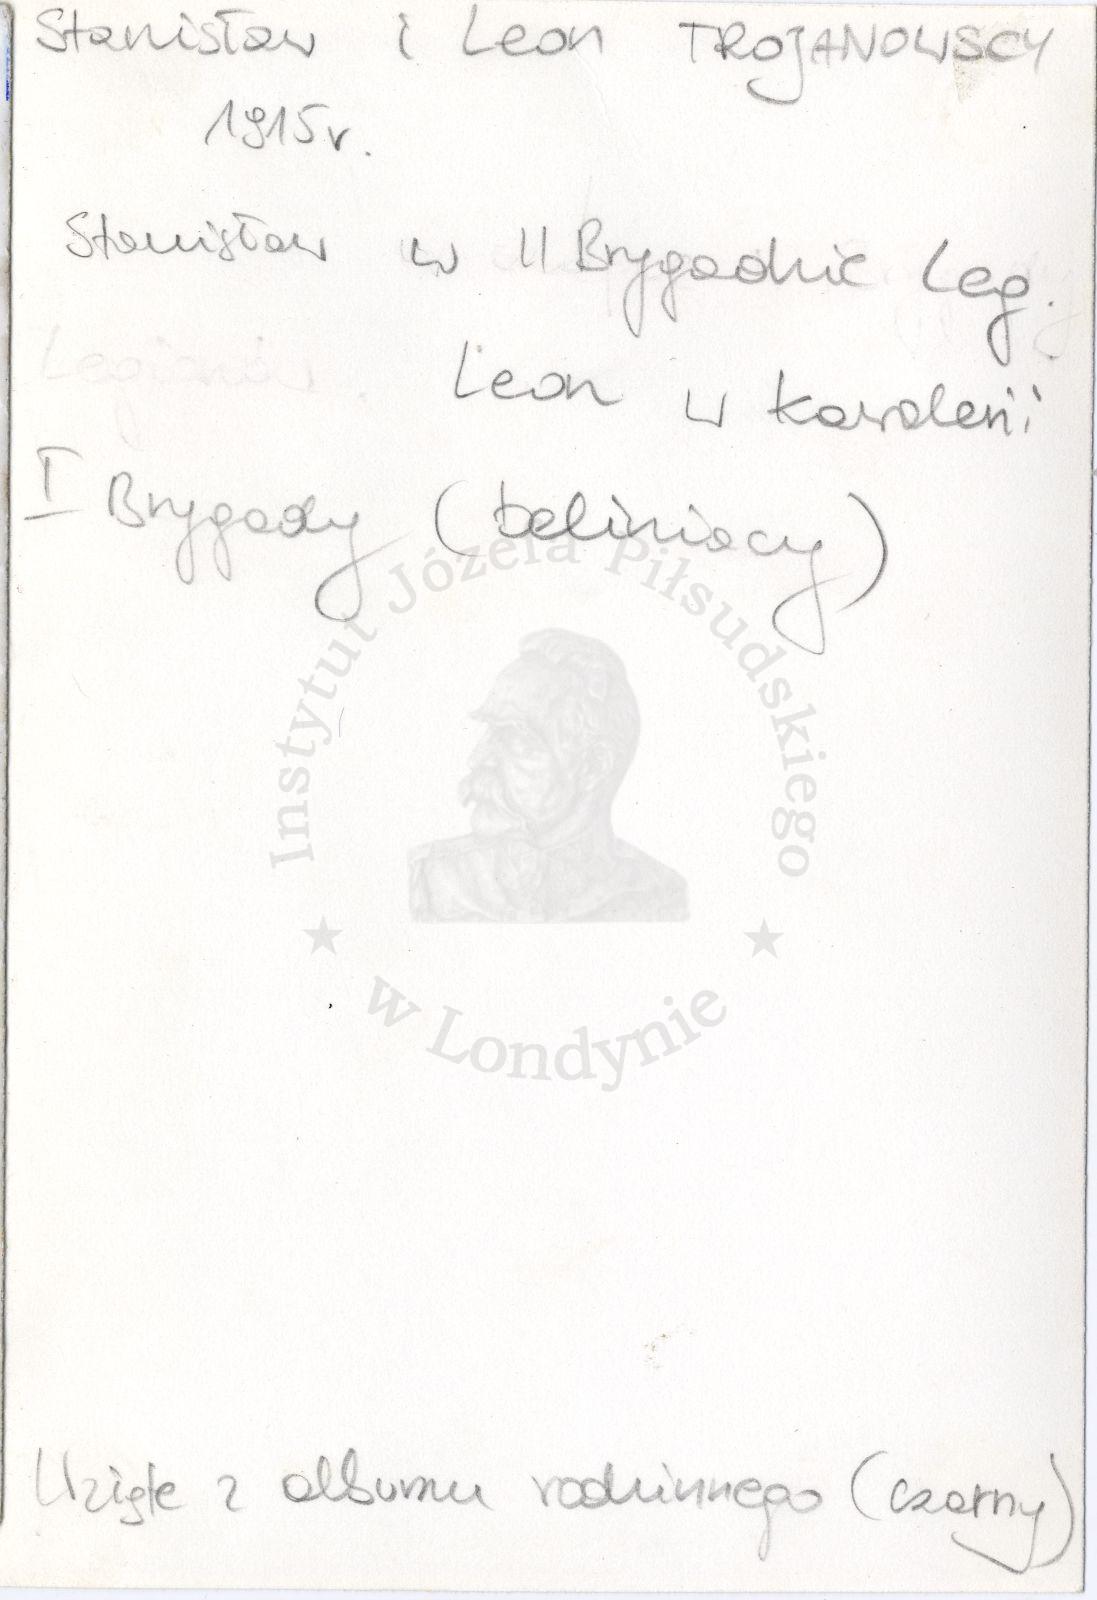 Stanisław i Leon TROJANOWSCY
1915r.
Stanisław w II Brygadzie Leg.
Legionów
Leon w kawalerii
I Brygady (beliniacy)
Instytut Józefa Piłsudskiego
w Londynie
Wzięte z albumu rodzinnego (czarny)